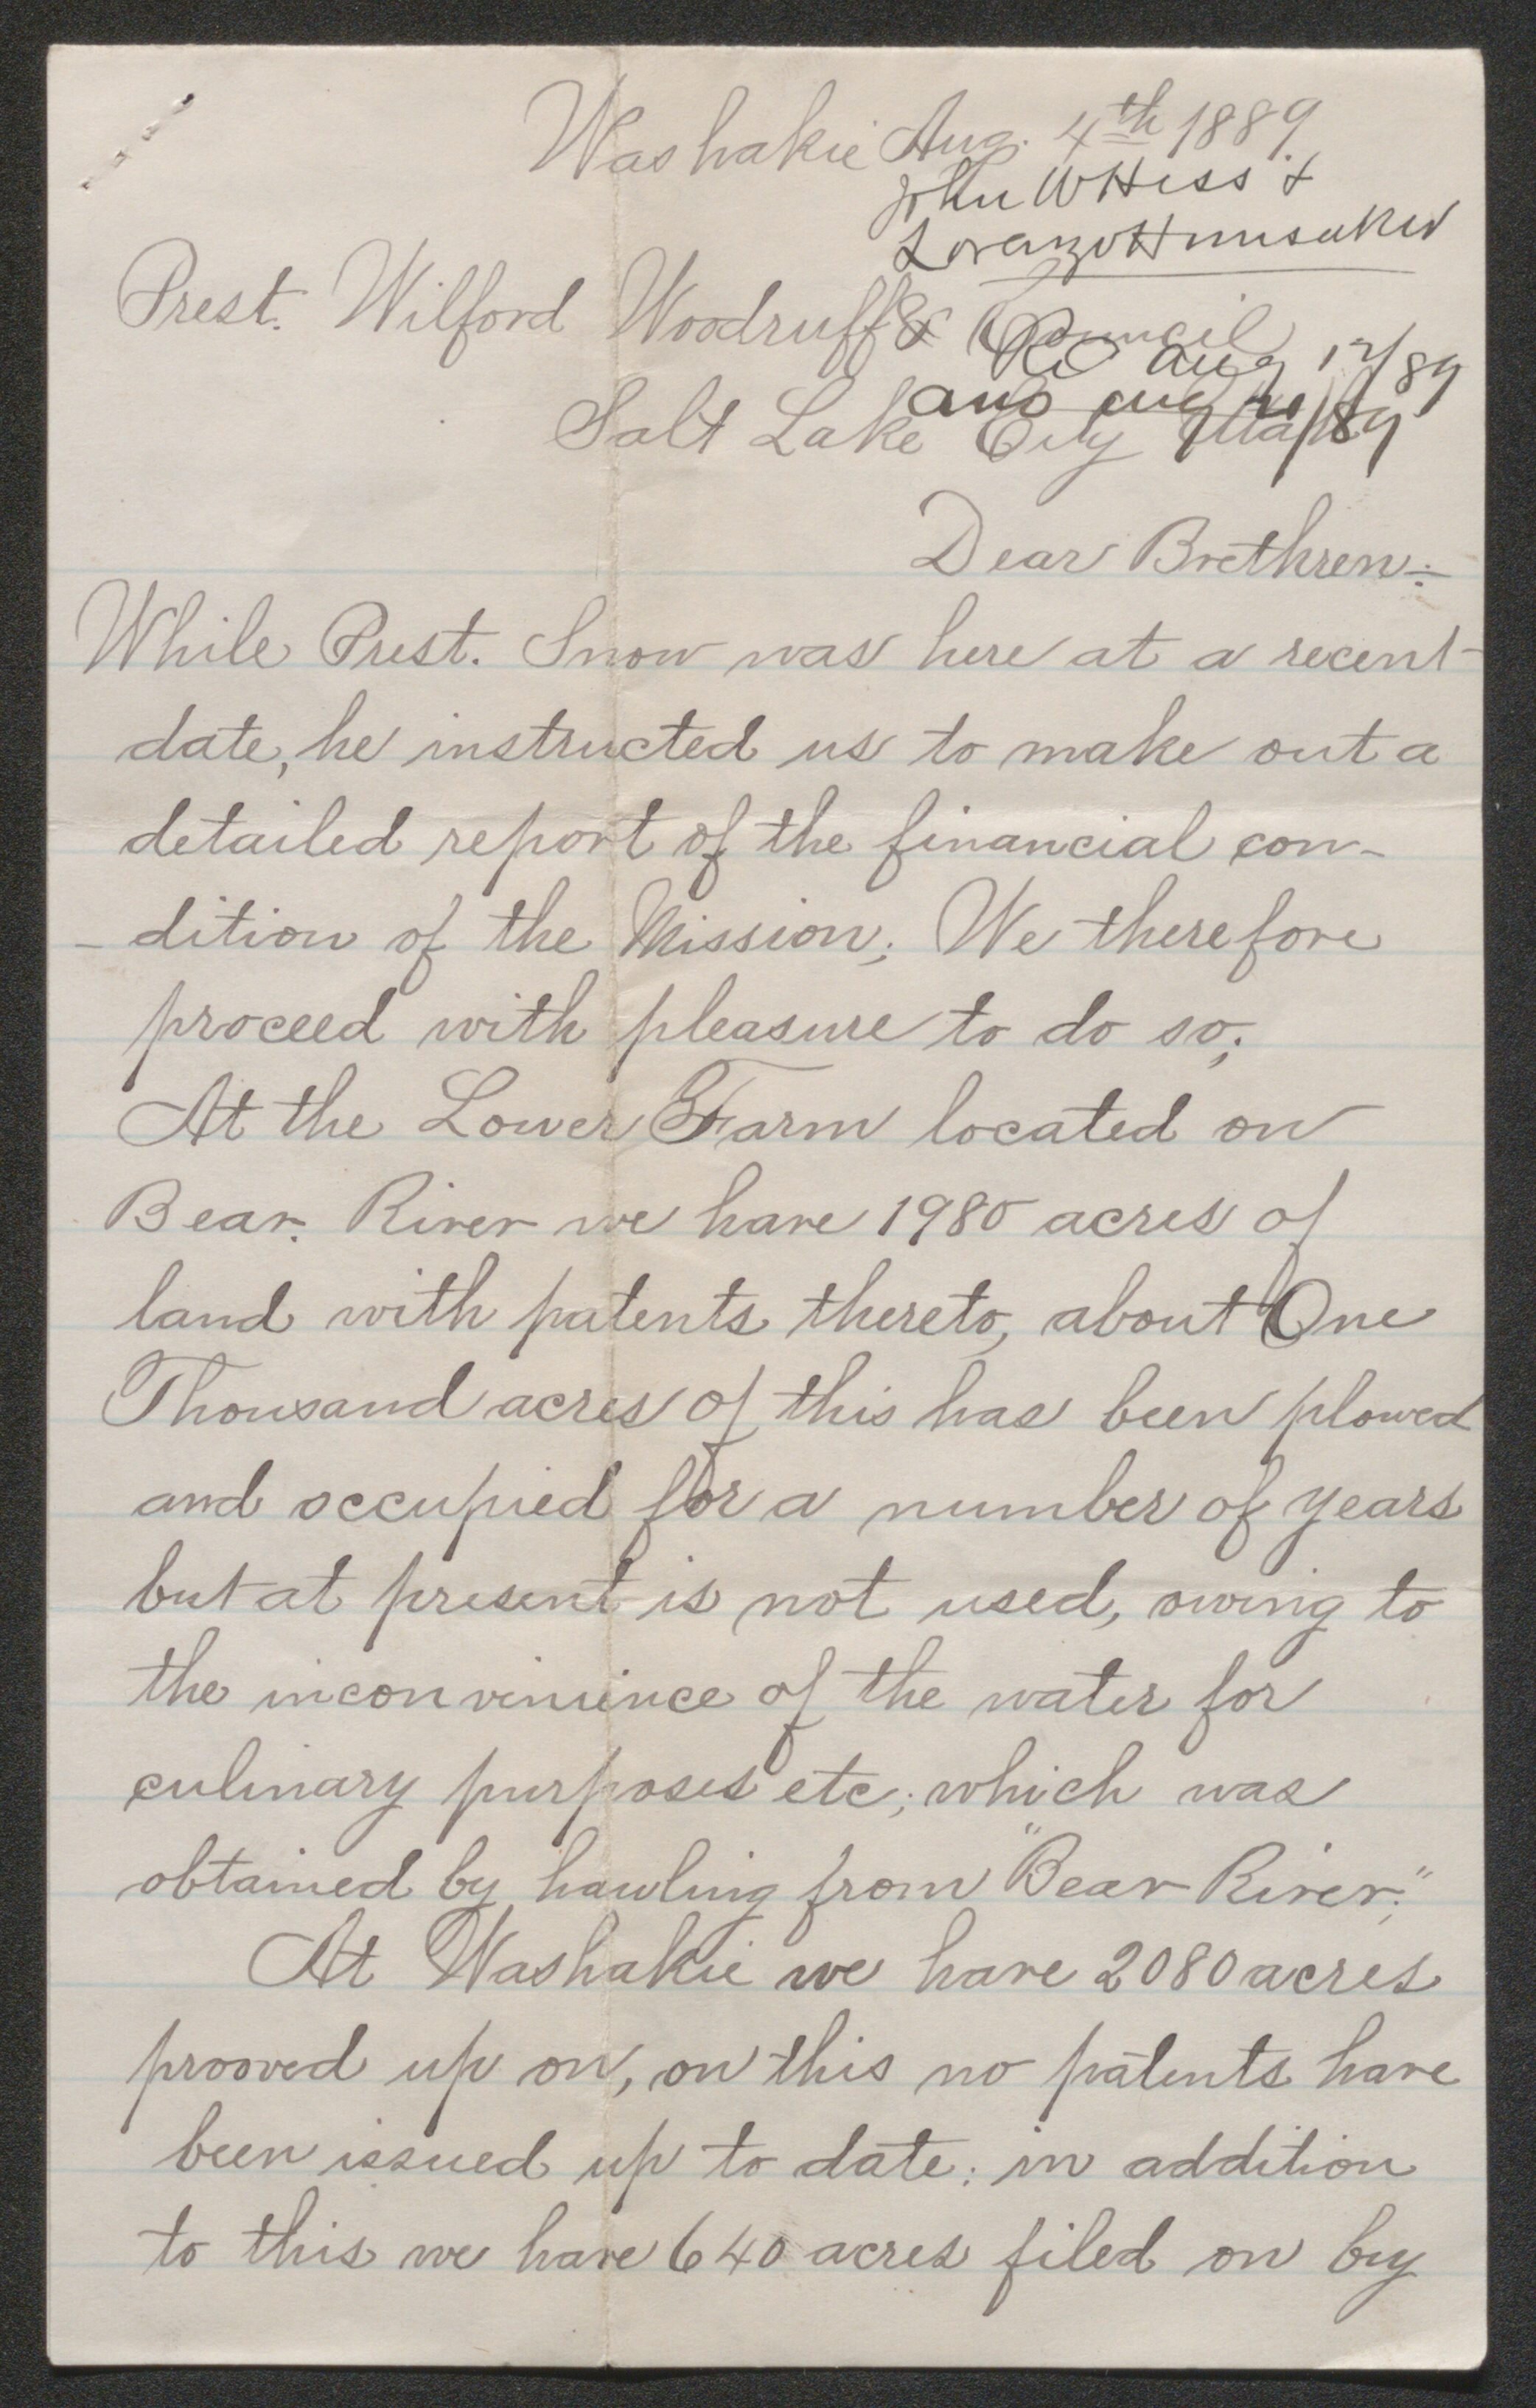 Washakie Aug. 4th 1889
John W Hess &
Lorenzo Hunsaker
Prest. Wilford Woodruff & Council
Rec Aug 12/89
ans aug /89
Salt Lake City Utah
Dear Brethren:-
While Prest. Snow was here at a recent
date, he instructed us to make out a
detailed report of the financial con-
-dition of the Mission; We therefore
proceed with pleasure to do so;
At the Lower Farm located on
Bear. River we have 1980 acres of
land with patents thereto, about One
Thousand acres of this has been plowed
and occupied for a number of years
but at present is not used, owing to
the inconvinience of the water for
culinary purposes etc; which was
obtained by hawling from "Bear River;"
At Washakie we have 2080 acres
prooved up on, on this no patents have
been issued up to date: in addition
to this we have 640 acres filed on by